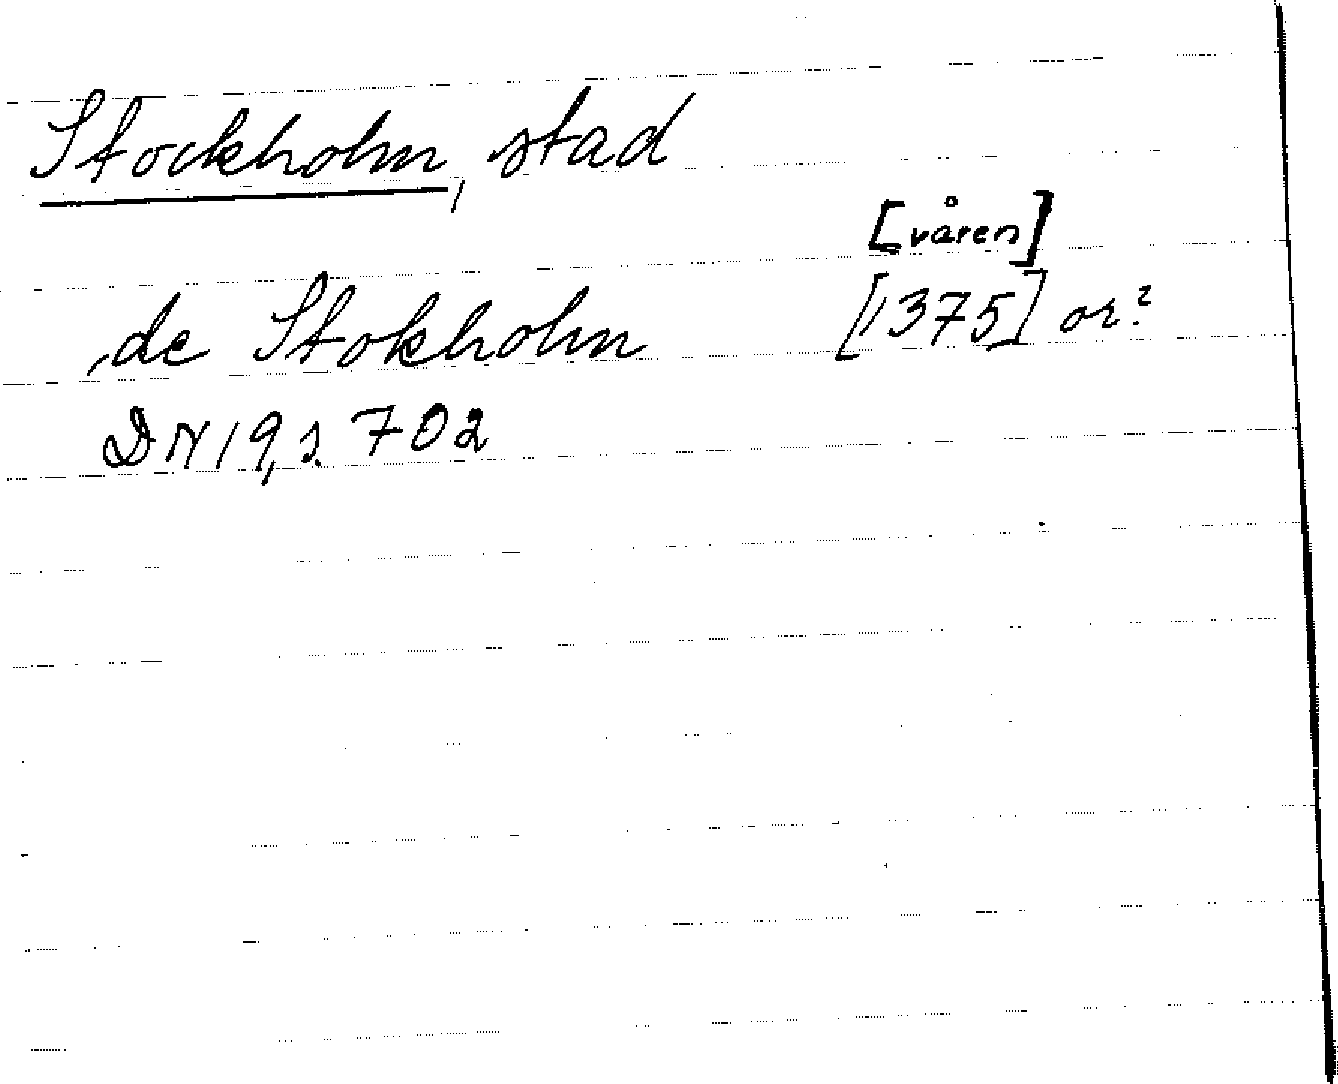 Stockholm, stad
[våren]
de Stokholm [1375] or?
DN 19, s. 702